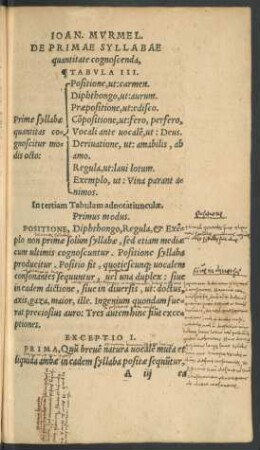 IOAN. MVRMEL.
DE PRIMAE SYLLABAE
quantitate cognoscenda,
¶ TABVLA III.
Positione, ut: carmen.
Diphthongo, ut: aurum.
Præpositione, ut: edisco.
Primæ syllabæ Cōpositione, ut: fero, perfero,
quantitas co- Vocali ante uocalē, ut: Deus.
gnoscitur mo- Deriuatione, ut: amabilis, ab
dis octo: amo.
Regula, ut: laui lotum.
Exemplo, ut: Vina parant a-
nimos.
In tertiam Tabulam adnotatiunculæ.
Primus modus.
POSITIONE, Diphthongo, Regula, & Exē-
plo non primæ solum syllabæ, sed etiam mediæ
cum ultimis cognoscuntur. Positione syllaba
producitur. Positio fit, quotiescunq; uocalem
consonantes sequuntur, uel una duplex: siue
in eadem dictione, siue in diuersis, ut: doctus,
axis, gaza, maior, ille. Ingenium quondam fue-
rat preciosius auro: Tres autem hinc fiut exce-
ptiones.
EXCEPTIO I.
PRIMA, Quū breuē natura uocalē muta et
liquida ambæ in eadem syllaba positæ sequūtur,
A iij ea